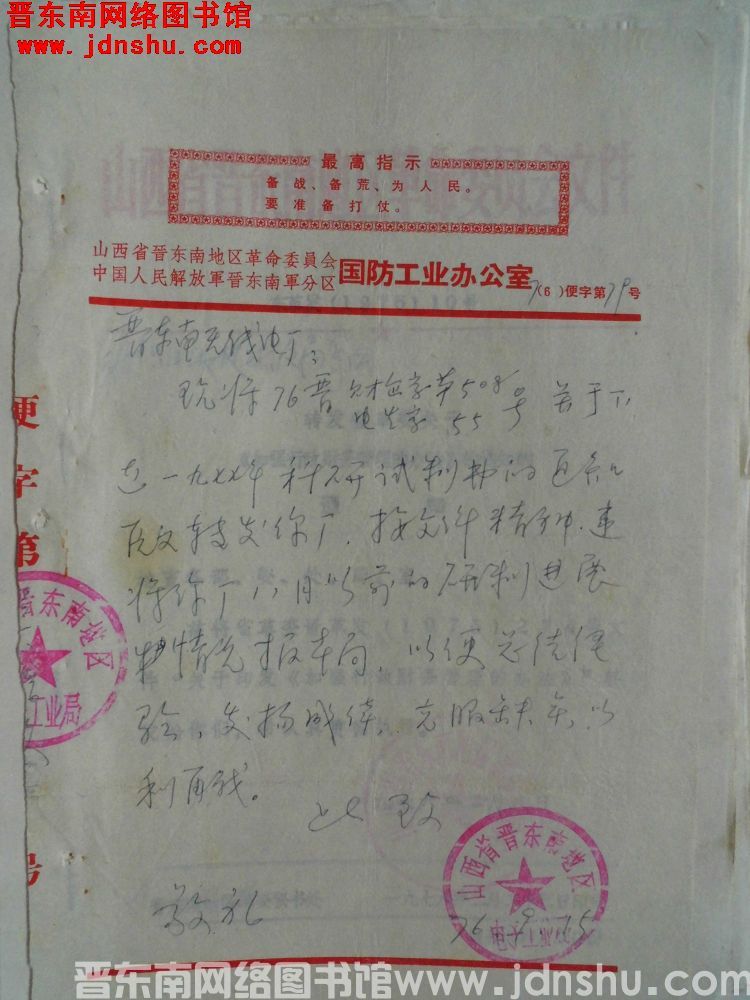 晋东南网络图书馆
www.jdnshu.com
最高指示
备战、备荒、为人民。
要准备打仗。
山西省晋东南地区革命委員会
中国人民解放軍晋东南軍分区
国防工业办公室
7(6)便字第79号
晋东南无线电厂：
现将76晋财企字第508号
电生字55
关于下
达一九七七年科研试制
文转发你厂，按文件精神，速
将你厂八月以前的研制进展
情况报本局，以便总结经
验、发扬成绩、克服缺点，以
利再战。
此致
敬礼
76.9.15
便字第
号
晋东南地区
工业局
山西省晋东南地区
电子工业
晋东南网络图书馆 www.jdnshu.com